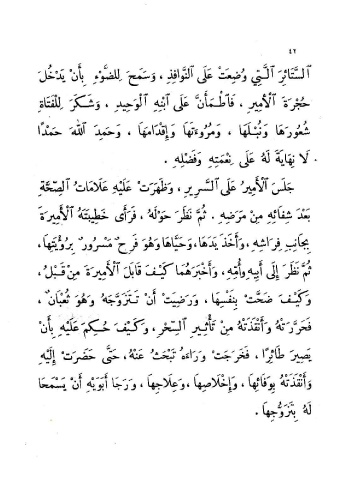 ٤٢
السَّتَائِرَ الَّتِي وُضِعَتْ عَلَى النَّوَافِذِ ، وَسَمَحَ لِلضَّوْءِ بِأَنْ يَدْخُلَ
حُجْرَةَ الْأَمِيرِ . فَاطْمَأَنَّ عَلَى ابْنِهِ الْوَحِيدِ ، وَشَكَرَ لِلْفَتَاةِ
شُعُورَهَا وَنُبْلَهَا ، وَمُرُوءَتَهَا وَإِقْدَامَهَا ، وَحَمِدَ اللهَ حَمْدًا
لَا نِهَايَةَ لَهُ عَلَى نِعْمَتِهِ وَفَضْلِهِ .
جَلَسَ الْأَمِيرُ عَلَى السَّرِيرِ ، وَظَهَرَتْ عَلَيْهِ عَلَامَاتُ الصِّحَّةِ
بَعْدَ شِفَائِهِ مِنْ مَرَضِهِ . ثُمَّ نَظَرَ حَوْلَهُ ، فَرَأَى خَطِيبَتَهُ الْأَمِيرَةَ
بِجَانِبِ فِرَاشِهِ ، وَأَخَذَ يَدَهَا ، وَحَيَّاهَا وَهُوَ فَرِحٌ مَسْرُورٌ بِرُؤْيَتِهَا .
ثُمَّ نَظَرَ إِلَى أَبِيهِ وَأُمِّهِ ، وَأَخْبَرَهُمَا كَيْفَ قَابَلَ الْأَمِيرَةَ مِنْ قَبْلُ ،
وَكَيْفَ ضَحَّتْ بِنَفْسِهَا ، وَرَضِيَتْ أَنْ تَتَزَوَّجَهُ وَهُوَ ثُعْبَانٌ ،
فَحَرَّرَتْهُ وَأَنْقَذَتْهُ مِنْ تَأْثِيرِ السِّحْرِ ، وَكَيْفَ حُكِمَ عَلَيْهِ بِأَنْ
يَصِيرَ طَائِرًا ، فَخَرَجَتْ وَرَاءَهُ تَبْحَثُ عَنْهُ ، حَتَّى حَضَرَتْ إِلَيْهِ
وَأَنْقَذَتْهُ بِوَفَائِهَا ، وَإِخْلَاصِهَا ، وَعِلَاجِهَا ، وَرَجَا أَبَوَيْهِ أَنْ يَسْمَحَا
لَهُ بِتَزَوُّجِهَا .